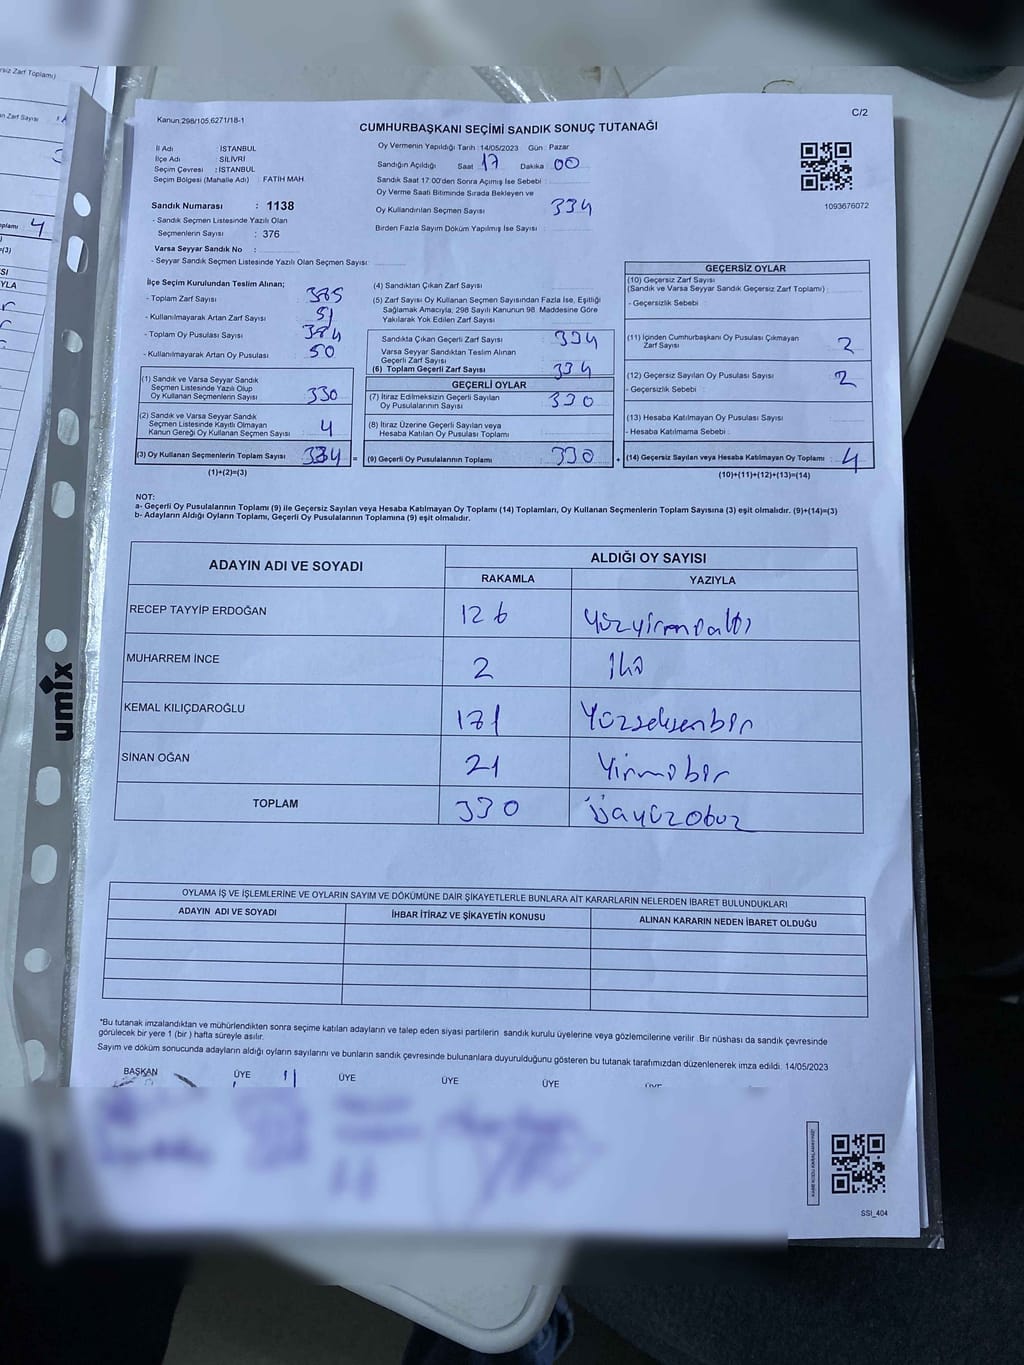 C/2
Kanun:298/105,6271/18-1
CUMHURBAŞKANI SEÇİMİ SANDIK SONUÇ TUTANAĞI
İl Adı : İSTANBUL
İlçe Adı : SİLİVRİ
Seçim Çevresi : İSTANBUL
Seçim Bölgesi (Mahalle Adı) : FATİH MAH.
Sandık Numarası : 1138
- Sandık Seçmen Listesinde Yazılı Olan
Seçmenlerin Sayısı : 376
Varsa Seyyar Sandık No :
- Seyyar Sandık Seçmen Listesinde Yazılı Olan Seçmen Sayısı:
Oy Vermenin Yapıldığı Tarih :14/05/2023 Gün : Pazar
Sandığın Açıldığı Saat 17 Dakika 00
Sandık Saat 17:00'den Sonra Açımış İse Sebebi :
Oy Verme Saati Bitiminde Sırada Bekleyen ve
Oy Kullandırılan Seçmen Sayısı 334
Birden Fazla Sayım Döküm Yapılmış İse Sayısı :
1093676072
İlçe Seçim Kurulundan Teslim Alınan;
- Toplam Zarf Sayısı : 385
- Kullanılmayarak Artan Zarf Sayısı : 51
- Toplam Oy Pusulası Sayısı : 384
- Kullanılmayarak Artan Oy Pusulası : 50
(1) Sandık ve Varsa Seyyar Sandık
Seçmen Listesinde Yazılı Olup
Oy Kullanan Seçmenlerin Sayısı : 330
(2) Sandık ve Varsa Seyyar Sandık
Seçmen Listesinde Kayıtlı Olmayan
Kanun Gereği Oy Kullanan Seçmen Sayısı : 4
(3) Oy Kullanan Seçmenlerin Toplam Sayısı : 334
(1)+(2)=(3)
=
(4) Sandıktan Çıkan Zarf Sayısı :
(5) Zarf Sayısı Oy Kullanan Seçmen Sayısından Fazla İse, Eşitliği
Sağlamak Amacıyla, 298 Sayılı Kanunun 98. Maddesine Göre
Yakılarak Yok Edilen Zarf Sayısı :
Sandıkta Çıkan Geçerli Zarf Sayısı : 334
Varsa Seyyar Sandıktan Teslim Alınan
Geçerli Zarf Sayısı :
(6) Toplam Geçerli Zarf Sayısı : 334
GEÇERLİ OYLAR
(7) İtiraz Edilmeksizin Geçerli Sayılan
Oy Pusulalarının Sayısı : 330
(8) İtiraz Üzerine Geçerli Sayılan veya
Hesaba Katılan Oy Pusulası Toplamı :
(9) Geçerli Oy Pusulalarının Toplamı : 330
+
GEÇERSİZ OYLAR
(10) Geçersiz Zarf Sayısı
(Sandık ve Varsa Seyyar Sandık Geçersiz Zarf Toplamı) :
- Geçersizlik Sebebi :
(11) İçinden Cumhurbaşkanı Oy Pusulası Çıkmayan
Zarf Sayısı : 2
(12) Geçersiz Sayılan Oy Pusulası Sayısı : 2
- Geçersizlik Sebebi :
(13) Hesaba Katılmayan Oy Pusulası Sayısı :
- Hesaba Katılmama Sebebi :
(14) Geçersiz Sayılan veya Hesaba Katılmayan Oy Toplamı : 4
(10)+(11)+(12)+(13)=(14)
NOT:
a- Geçerli Oy Pusulalarının Toplamı (9) ile Geçersiz Sayılan veya Hesaba Katılmayan Oy Toplamı (14) Toplamları, Oy Kullanan Seçmenlerin Toplam Sayısına (3) eşit olmalıdır. (9)+(14)=(3)
b- Adayların Aldığı Oyların Toplamı, Geçerli Oy Pusulalarının Toplamına (9) eşit olmalıdır.
ADAYIN ADI VE SOYADI
ALDIĞI OY SAYISI
RAKAMLA YAZIYLA
RECEP TAYYİP ERDOĞAN 126 Yüzyirmialtı
MUHARREM İNCE 2 İki
KEMAL KILIÇDAROĞLU 181 Yüzseksenbir
SİNAN OĞAN 21 Yirmibir
TOPLAM 330 Üçyüzotuz
OYLAMA İŞ VE İŞLEMLERİNE VE OYLARIN SAYIM VE DÖKÜMÜNE DAİR ŞİKAYETLERLE BUNLARA AİT KARARLARIN NELERDEN İBARET BULUNDUKLARI
ADAYIN ADI VE SOYADI İHBAR İTİRAZ VE ŞİKAYETİN KONUSU ALINAN KARARIN NEDEN İBARET OLDUĞU
*Bu tutanak imzalandıktan ve mühürlendikten sonra seçime katılan adayların ve talep eden siyasi partilerin sandık kurulu üyelerine veya gözlemcilerine verilir. Bir nüshası da sandık çevresinde
görülecek bir yere 1 (bir ) hafta süreyle asılır.
Sayım ve döküm sonucunda adayların aldığı oyların sayılarını ve bunların sandık çevresinde bulunanlara duyurulduğunu gösteren bu tutanak tarafımızdan düzenlenerek imza edildi. 14/05/2023
BAŞKAN ÜYE ÜYE ÜYE ÜYE ÜYE
SSI_404
umix